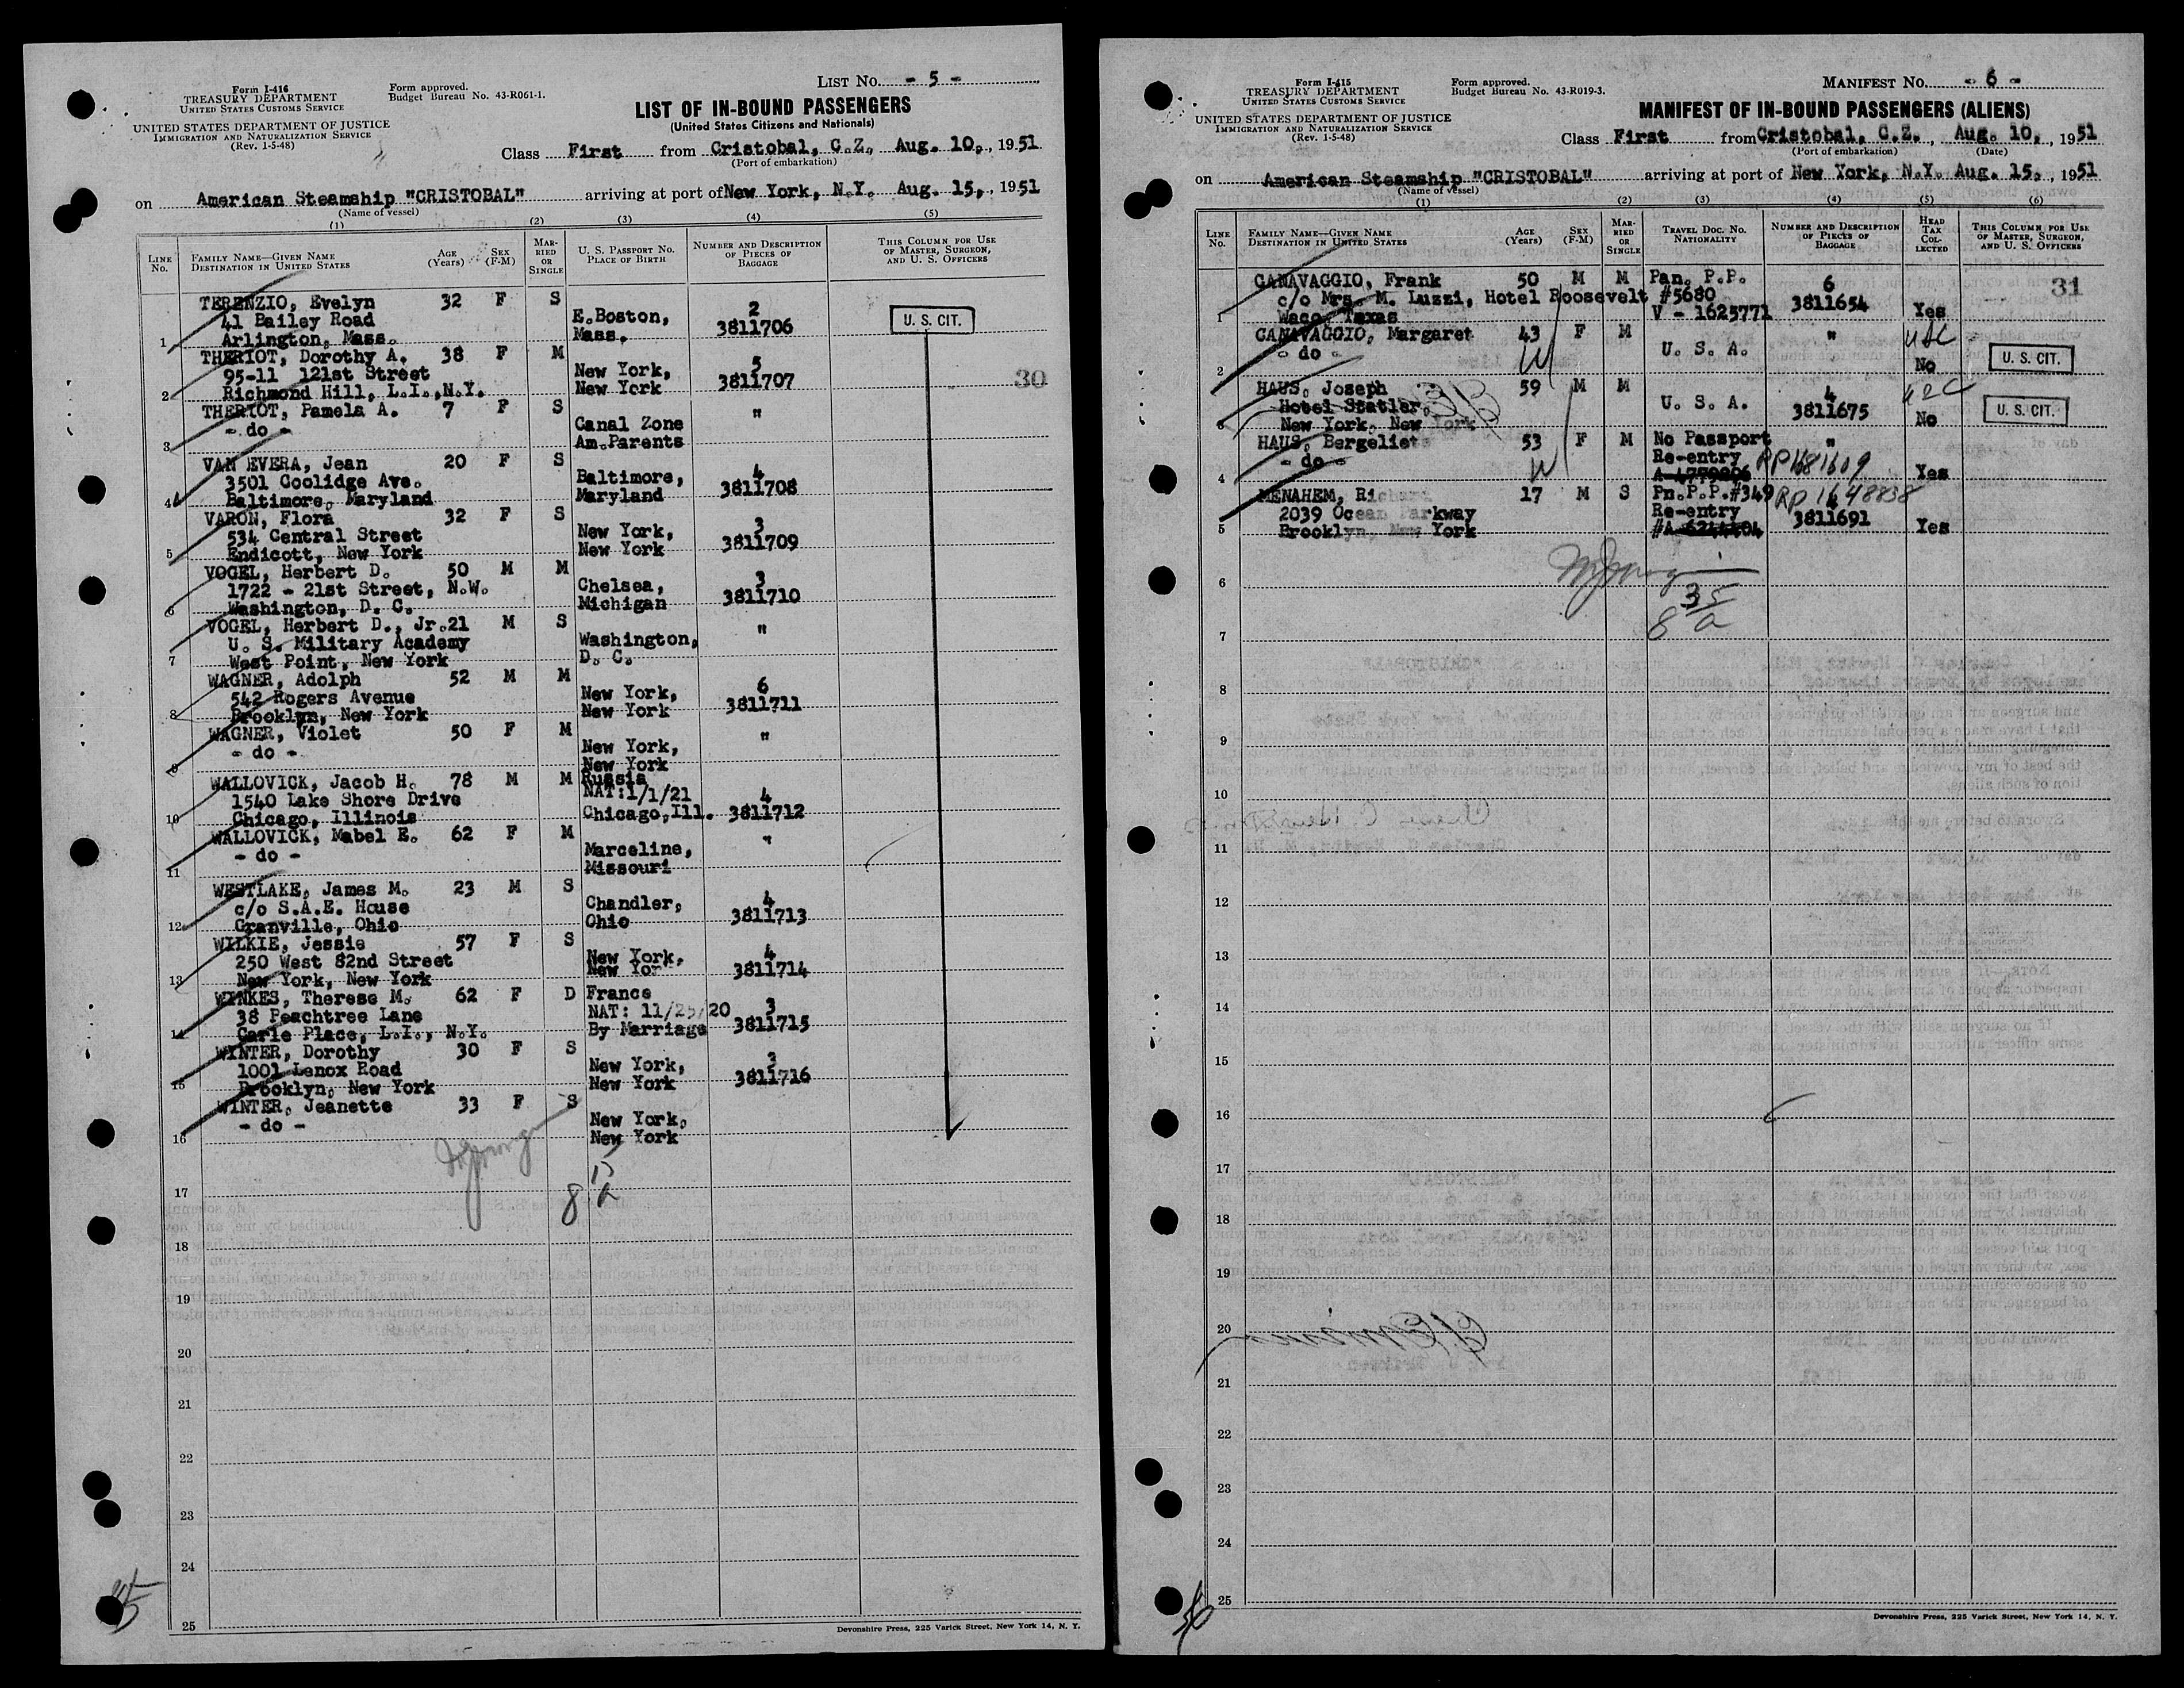 Form I-416
TREASURY DEPARTMENT
UNITED STATES CUSTOMS SERVICE
UNITED STATES DEPARTMENT OF JUSTICE
IMMIGRATION AND NATURALIZATION SERVICE
(Rev. 1-5-48)
Form approved.
Budget Bureau No. 43-R061-1.
LIST NO. - 5 -
LIST OF IN-BOUND PASSENGERS
(United States Citizens and Nationals)
Class First from Cristobal, C.Z., Aug. 10., 1951
(Port of embarkation)
on American Steamship "CRISTOBAL" arriving at port of New York, N.Y. Aug. 15., 1951
(Name of vessel)
(1) (2) (3) (4) (5)
LINE NO. FAMILY NAME—GIVEN NAME DESTINATION IN UNITED STATES AGE (Years) SEX (F-M) MARRIED OR SINGLE U. S. PASSPORT NO. PLACE OF BIRTH NUMBER AND DESCRIPTION OF PIECES OF BAGGAGE THIS COLUMN FOR USE OF MASTER, SURGEON, AND U. S. OFFICERS
TERENZIO, Evelyn 32 F S 2
41 Bailey Road E.Boston, 3811706 U. S. CIT.
1 Arlington, Mass. Mass.
THERIOT, Dorothy A. 38 F M 5
95-11 121st Street New York, 3811707 30
2 Richmond Hill, L.I.,N.Y. New York
THERIOT, Pamela A. 7 F S "
- do - Canal Zone
3 Am.Parents
VAN EVERA, Jean 20 F S 4
3501 Coolidge Ave. Baltimore, 3811708
4 Baltimore, Maryland Maryland
VARON, Flora 32 F S 3
534 Central Street New York, 3811709
5 Endicott, New York New York
VOGEL, Herbert D. 50 M M 3
1722 - 21st Street, N.W. Chelsea, 3811710
6 Washington, D. C. Michigan
VOGEL, Herbert D., Jr. 21 M S "
U. S. Military Academy Washington,
7 West Point, New York D. C.
WAGNER, Adolph 52 M M 6
542 Rogers Avenue New York, 3811711
8 Brooklyn, New York New York
WAGNER, Violet 50 F M "
- do - New York,
9 New York
WALLOVICK, Jacob H. 78 M M Russia
1540 Lake Shore Drive NAT:1/1/21 4
10 Chicago, Illinois Chicago,Ill. 3811712
WALLOVICK, Mabel E. 62 F M "
- do - Marceline,
11 Missouri
WESTLAKE, James M. 23 M S 4
c/o S.A.E. House Chandler, 3811713
12 Granville, Ohio Ohio
WILKIE, Jessie 57 F S 4
250 West 82nd Street New York, 3811714
13 New York, New York New Yor
WINKES, Therese M. 62 F D France
38 Peachtree Lane NAT: 11/25/20 3
14 Carle Place, L.I., N.Y. By Marriage 3811715
WINTER, Dorothy 30 F S 3
1001 Lenox Road New York, 3811716
15 Brooklyn, New York New York
WINTER, Jeanette 33 F S
- do - New York,
16 New York
17
18
19
20
21
22
23
24
25
Devonshire Press, 225 Varick Street, New York 14, N. Y.
Form I-415
TREASURY DEPARTMENT
UNITED STATES CUSTOMS SERVICE
UNITED STATES DEPARTMENT OF JUSTICE
IMMIGRATION AND NATURALIZATION SERVICE
(Rev. 1-5-48)
Form approved.
Budget Bureau No. 43-R019-3.
MANIFEST NO. - 6 -
MANIFEST OF IN-BOUND PASSENGERS (ALIENS)
Class First from Cristobal, C.Z., Aug. 10, 1951
(Port of embarkation) (Date)
on American Steamship "CRISTOBAL" arriving at port of New York, N.Y. Aug. 15., 1951
(Name of vessel)
(1) (2) (3) (4) (5) (6)
LINE NO. FAMILY NAME—GIVEN NAME DESTINATION IN UNITED STATES AGE (Years) SEX (F-M) MARRIED OR SINGLE TRAVEL DOC. NO. NATIONALITY NUMBER AND DESCRIPTION OF PIECES OF BAGGAGE HEAD TAX COLLECTED THIS COLUMN FOR USE OF MASTER, SURGEON, AND U. S. OFFICERS
CANAVAGGIO, Frank 50 M M Pan. P.P. 6 31
c/o Mrs. M. Luzzi, Hotel Roosevelt #5680 3811654
1 Waco, Texas V - 1625771 Yes
CANAVAGGIO, Margaret 43 F M " USC
- do - U. S. A. U. S. CIT.
2 No
HAUS, Joseph 59 M M 4 USC
Hotel Statler, U. S. A. 3811675 U. S. CIT.
3 New York, New York No
HAUS, Bergeliet 53 F M No Passport "
- do - Re-entry RP1681609
4 Yes
MENAHEM, Richard 17 M S Pn.P.P.#349 RP 1648838 4
2039 Ocean Parkway Re-entry 3811691
5 Brooklyn, New York Yes
6
8 35/a
7
8
9
10
11
12
13
14
15
16
17
18
19
20
21
22
23
24
25
Devonshire Press, 225 Varick Street, New York 14, N. Y.